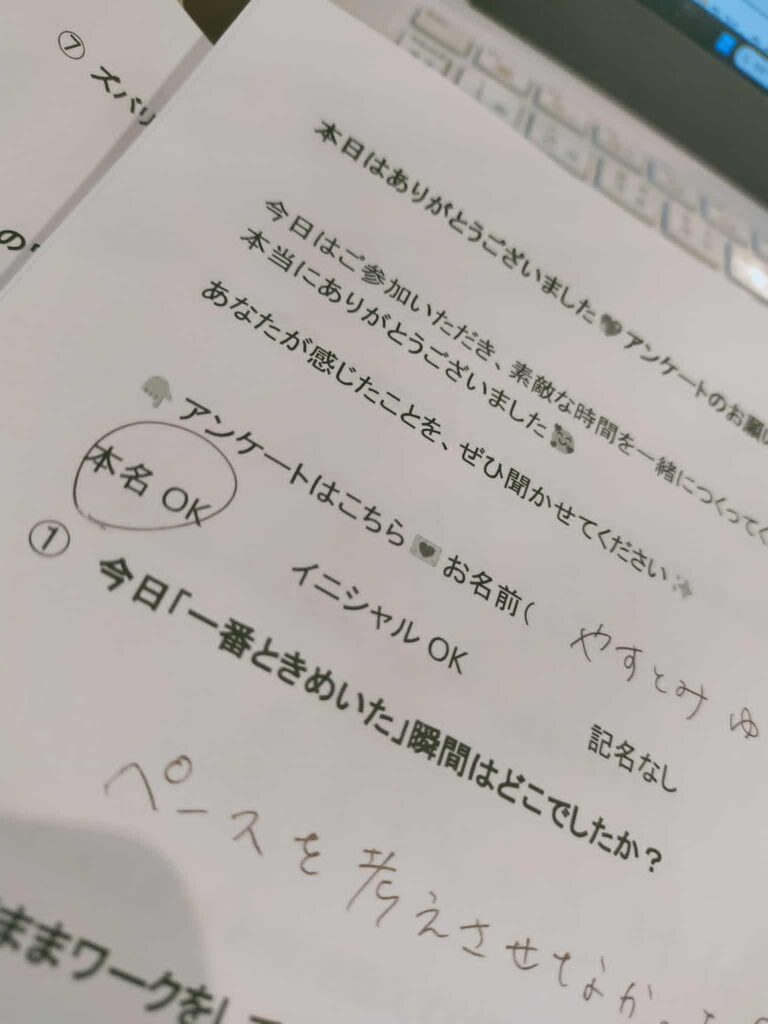 ⑦ ズバリ
の
本日はありがとうございました🖤アンケートのお願い
今日はご参加いただき、素敵な時間を一緒につくってく
本当にありがとうございました
あなたが感じたことを、ぜひ聞かせてください✨
👇アンケートはこちら💌お名前( やすとみ ゆ
本名 OK イニシャル OK 記名なし
① 今日「一番ときめいた」瞬間はどこでしたか？
ペースを考えさせなか
ままワークをして